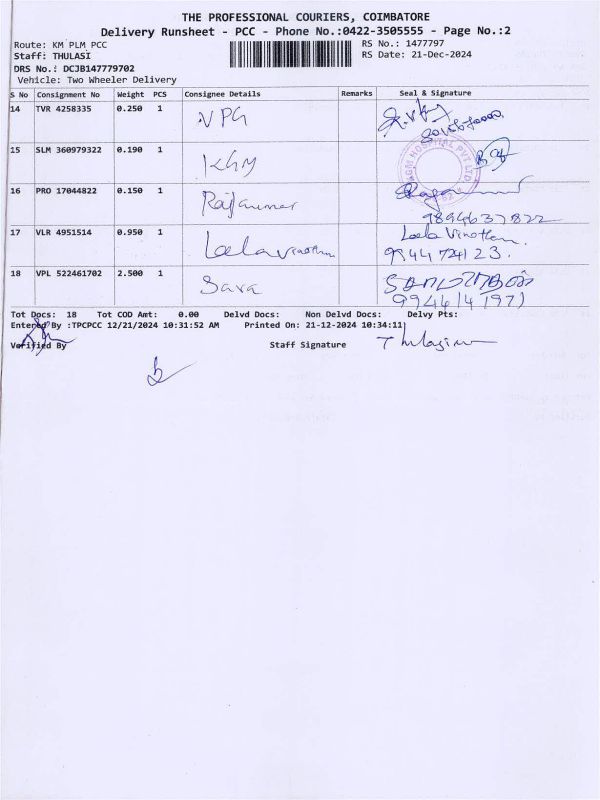 THE PROFESSIONAL COURIERS, COIMBATORE
Delivery Runsheet - PCC - Phone No.:0422-3505555 - Page No.:2
Route: KM PLM PCC
RS No.: 1477797
Staff: THULASI
RS Date: 21-Dec-2024
DRS No.: DCJB147779702
Vehicle: Two Wheeler Delivery
S No Consignment No Weight PCS Consignee Details Remarks Seal & Signature
14 TVR 4258335 0.250 1 VPG
15 SLM 360979322 0.190 1 KGM
HOSPITAL PVT LTD
16 PRO 17044822 0.150 1 Rajkumar
9894637822
17 VLR 4951514 0.950 1 Leela vinothm Leela Vinothm.
9944724123.
18 VPL 522461702 2.500 1 Sara
9944641971
Tot Docs: 18 Tot COD Amt: 0.00 Delvd Docs: Non Delvd Docs: Delvy Pts:
Entered By :TPCPCC 12/21/2024 10:31:52 AM Printed On: 21-12-2024 10:34:11
Verified By Staff Signature Thulasi